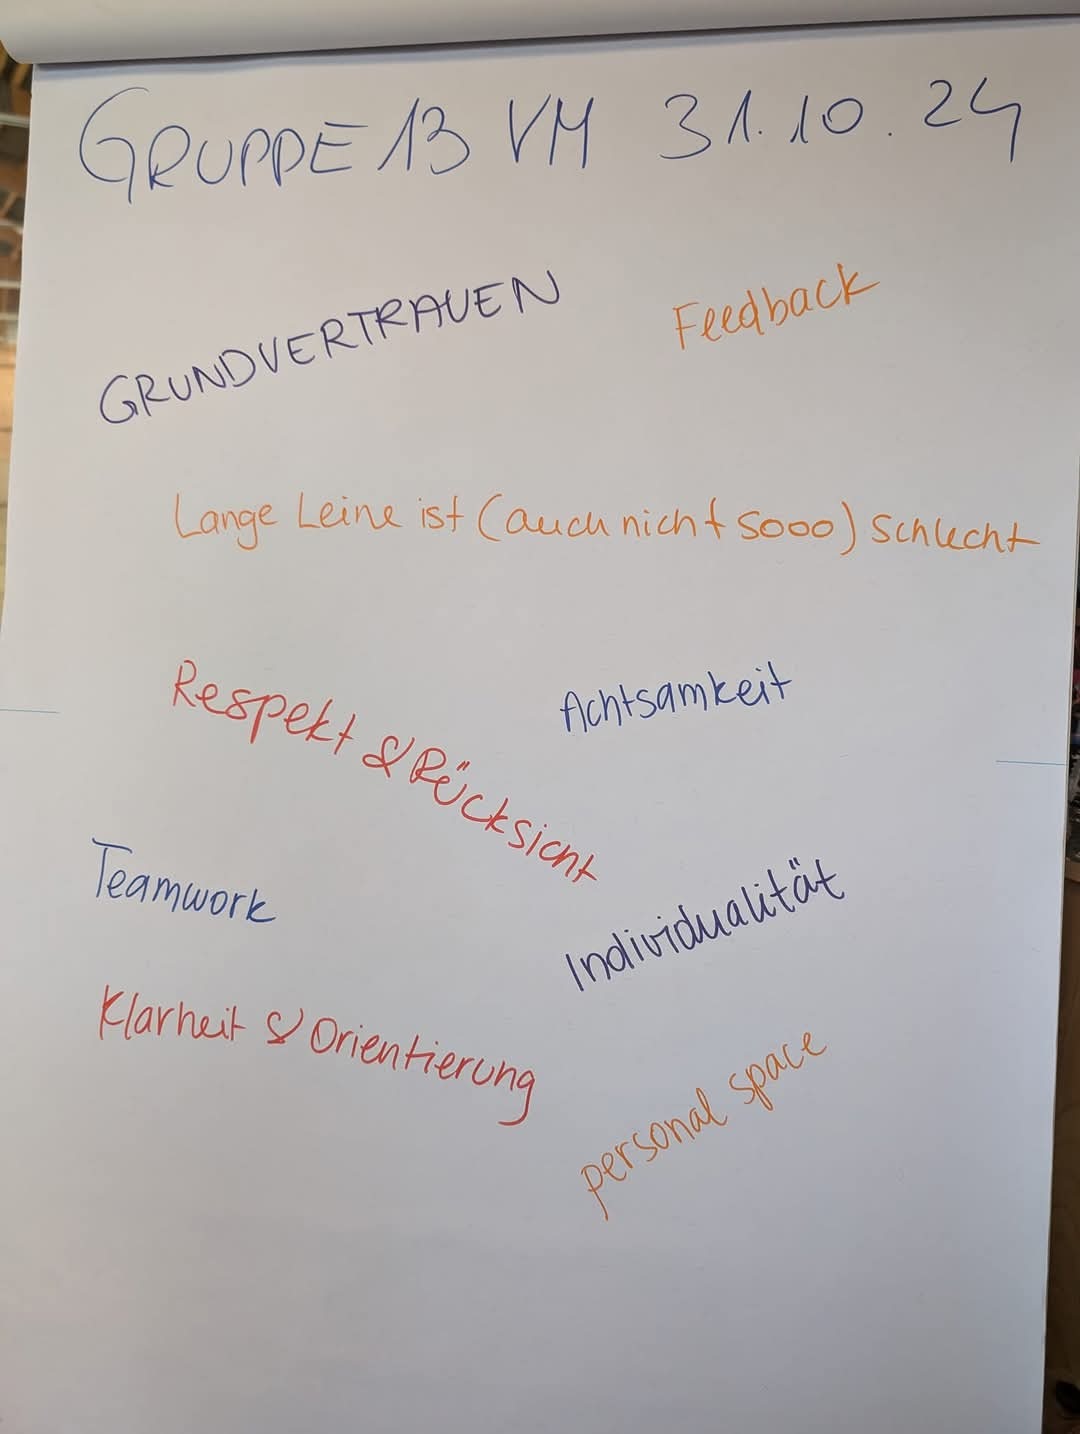 GRUPPE 13 VM 31.10.24
GRUNDVERTRAUEN
Feedback
Lange Leine ist (auch nicht sooo) schlecht
Respekt & Rücksicht
Achtsamkeit
Teamwork
Individualität
Klarheit & Orientierung
personal space